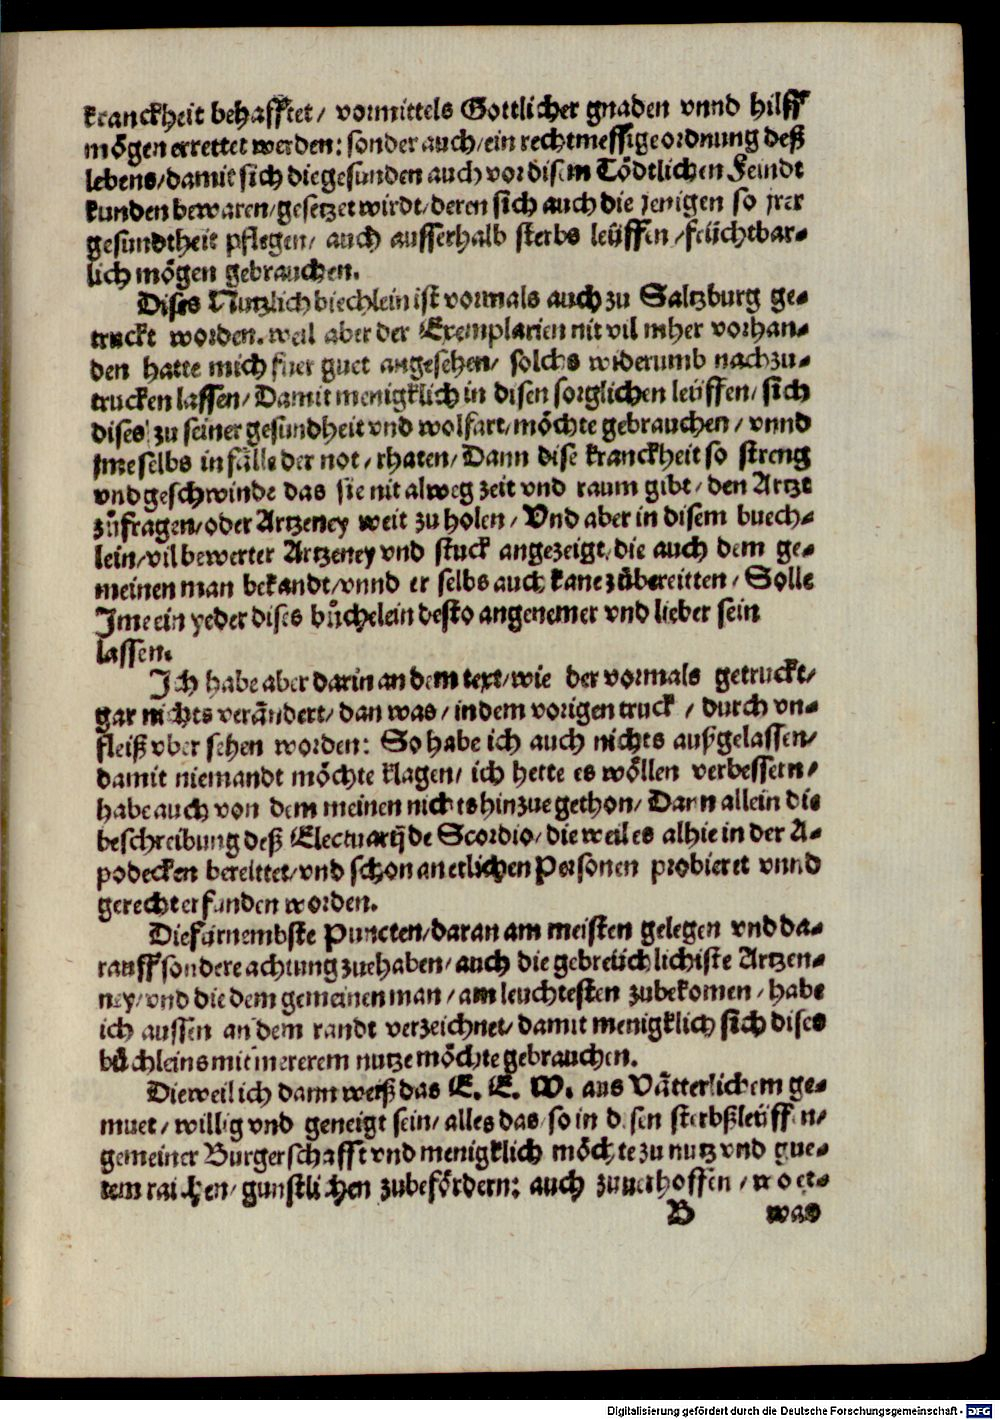 kranckheit behafftet/ vormittels Gottlicher gnaden vnnd hilff
mögen errettet werden: sonder auch/ ein rechtmessige ordnung deß
lebens/ damit sich die gesunden auch vor disem Tödtlichen Feindt
kunden bewaren/ gesetzet wirdt/ deren sich auch die jenigen so jrer
gesundtheit pflegen/ auch ausserhalb sterbs leüffen/ früchtbar-
lich mögen gebrauchen.
Dises Nutzlich biechlein ist vormals auch zu Saltzburg ge-
truckt worden. weil aber der Exemplarien nit vil mher vorhan-
den hatte mich fuer guet angesehen/ solchs widerumb nachzu-
trucken lassen/ Damit menigklich in disen sorglichen leüffen/ sich
dises zu seiner gesundheit vnd wolfart/ möchte gebrauchen/ vnnd
jme selbs in fälle der not/ rhaten/ Dann dise kranckheit so streng
vnd geschwinde das sie nit alweg zeit vnd raum gibt/ den Artzt
zůfragen/ oder Artzeney weit zu holen/ Vnd aber in disem buech-
lein/ vil bewerter Artzeney vnd stuck angezeigt/ die auch dem ge-
meinen man bekandt/ vnnd er selbs auch kane zůbereitten/ Solle
Jme ein yeder dises bůchelein desto angenemer vnd lieber sein
lassen.
Ich habe aber darin an dem text/ wie der vormals getruckt/
gar nichts verändert/ dan was/ in dem vorigen truck/ durch vn-
fleiß vber sehen worden: So habe ich auch nichts außgelassen/
damit niemandt möchte klagen/ ich hette es wöllen verbessern/
habe auch von dem meinen nichts hinzue gethon/ Dann allein die
beschreibung deß Electuarij de Scordio/ die weil es alhie in der A-
podecken bereittet/ vnd schon an etlichen Personen probieret vnnd
gerecht erfunden worden.
Die fürnembste Puncten/ daran am meisten gelegen vnd da-
rauff sondere achtung zuehaben/ auch die gebreüchlichiste Artzen-
ney/ vnd die dem gemeinen man/ am leuchtesten zubekomen/ habe
ich aussen an dem randt verzeichnet/ damit menigklich sich dises
bůchleins mit mererem nutze möchte gebrauchen.
Dieweil ich dann weiß das E. E. W. aus Vätterlichem ge-
muet/ willig vnd geneigt sein/ alles das so in disen sterbßleüffen/
gemeiner Burgerschafft vnd menigklich möchte zu nutz vnd gue-
tem raichen/ gunstlichen zubefördern: auch zuuerhoffen/ wo et-
B was
Digitalisierung gefördert durch die Deutsche Forschungsgemeinschaft - DFG